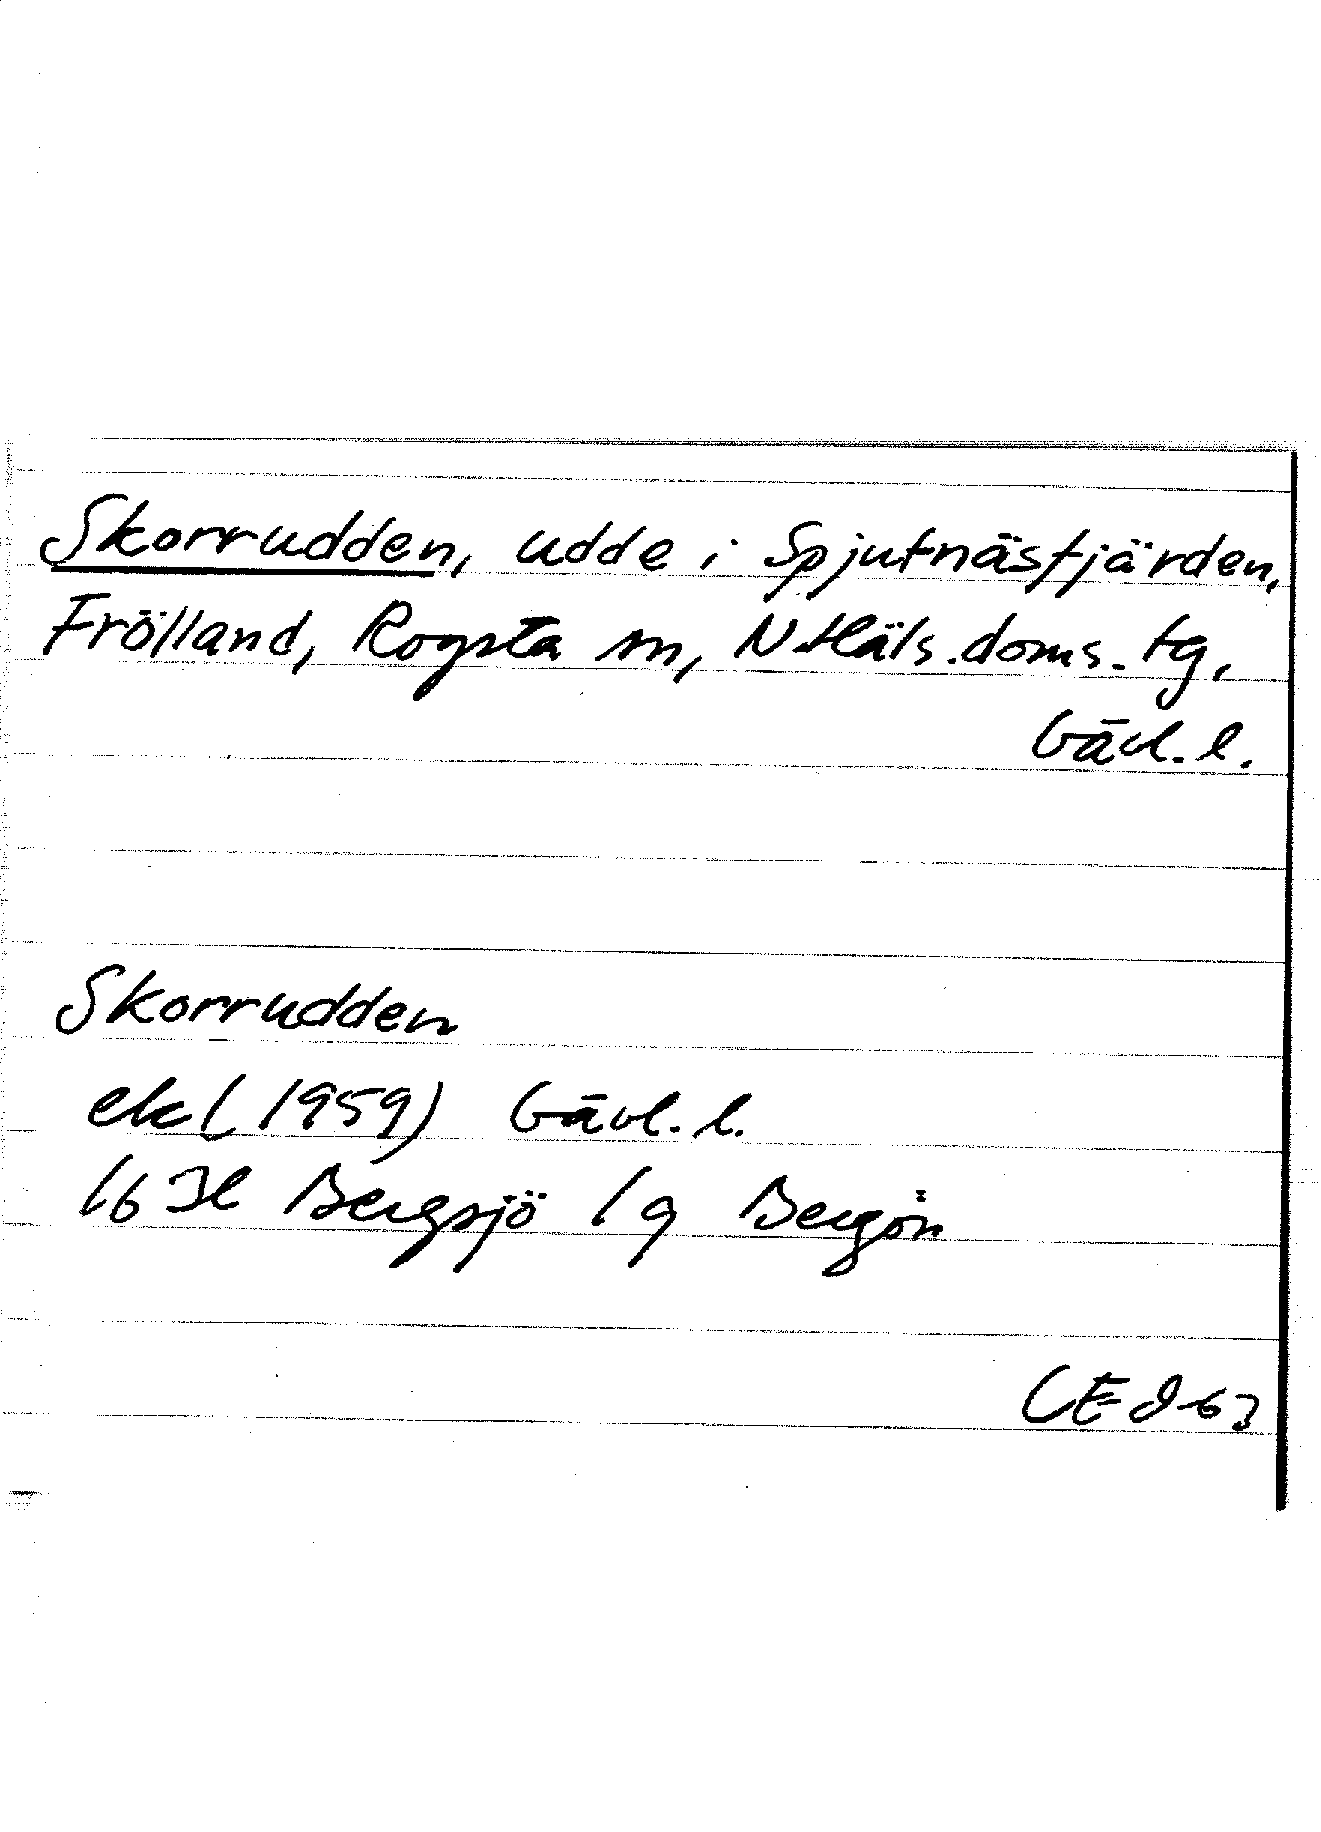 Skorrudden, udde i Spjutnäsfjärden,
Frölland, Rogsta sn, N Häls. doms. tg,
Gävl. l.
Skorrudden
ek (1959) Gävl. l.
16 H Bergsjö 1 g Bergön
CEd-63